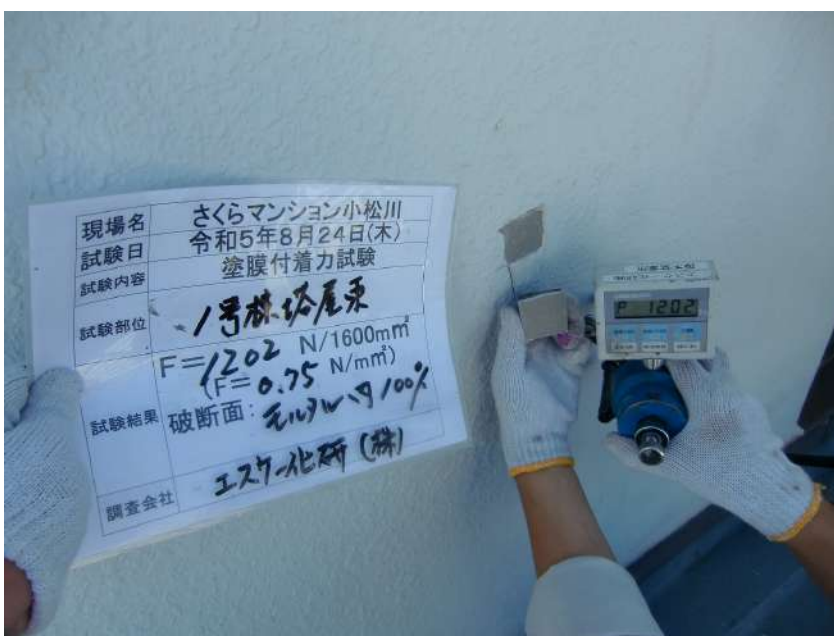 現場名 さくらマンション小松川
試験日 令和5年8月24日(木)
試験内容 塗膜付着力試験
試験部位 1号棟塔屋東
試験結果 F=1202 N/1600mm²
(F=0.75 N/mm²)
破断面: モルタル内100%
調査会社 エスケー化研(株)
P 1202